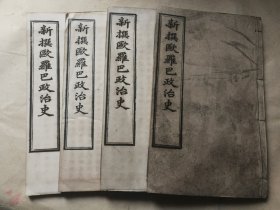 新撰歐羅巴政治史
新撰歐羅巴政治史
新撰歐羅巴政治史
新撰歐羅巴政治史